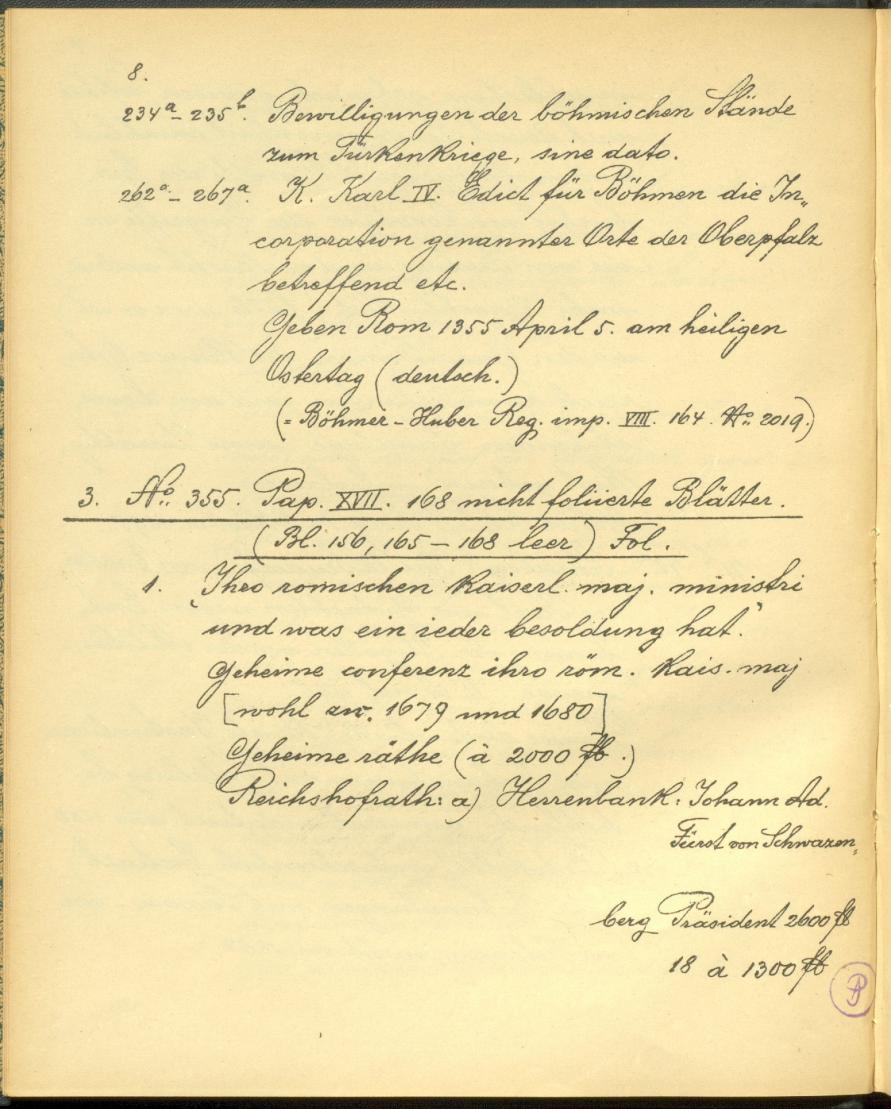 8.
234a - 235b. Bewilligungen der böhmischen Stände
zum Türkenkriege, sine dato.
262a - 267a. K. Karl IV. Edict für Böhmen die In„
corporation genannter Orte der Oberpfalz
betreffend etc.
Geben Rom 1355 April 5. am heiligen
Ostertag (deutsch.)
(= Böhmer - Huber Reg. imp. VIII. 164. No. 2019.)
3. No. 355. Pap. XVII. 168 nicht foliierte Blätter.
(Bl. 156, 165 - 168 leer) Fol.
1. ‚Ihro romischen kaiserl. maj. ministri
und was ein ieder besoldung hat.‘
Geheime conferenz ihro röm. kais. maj
[wohl zw. 1679 und 1680]
Geheime räthe (à 2000 fl.)
Reichshofrath: a) Herrenbank: Johann Ad.
Fürst von Schwarzen„
berg Präsident 2600 fl
18 à 1300 fl
P